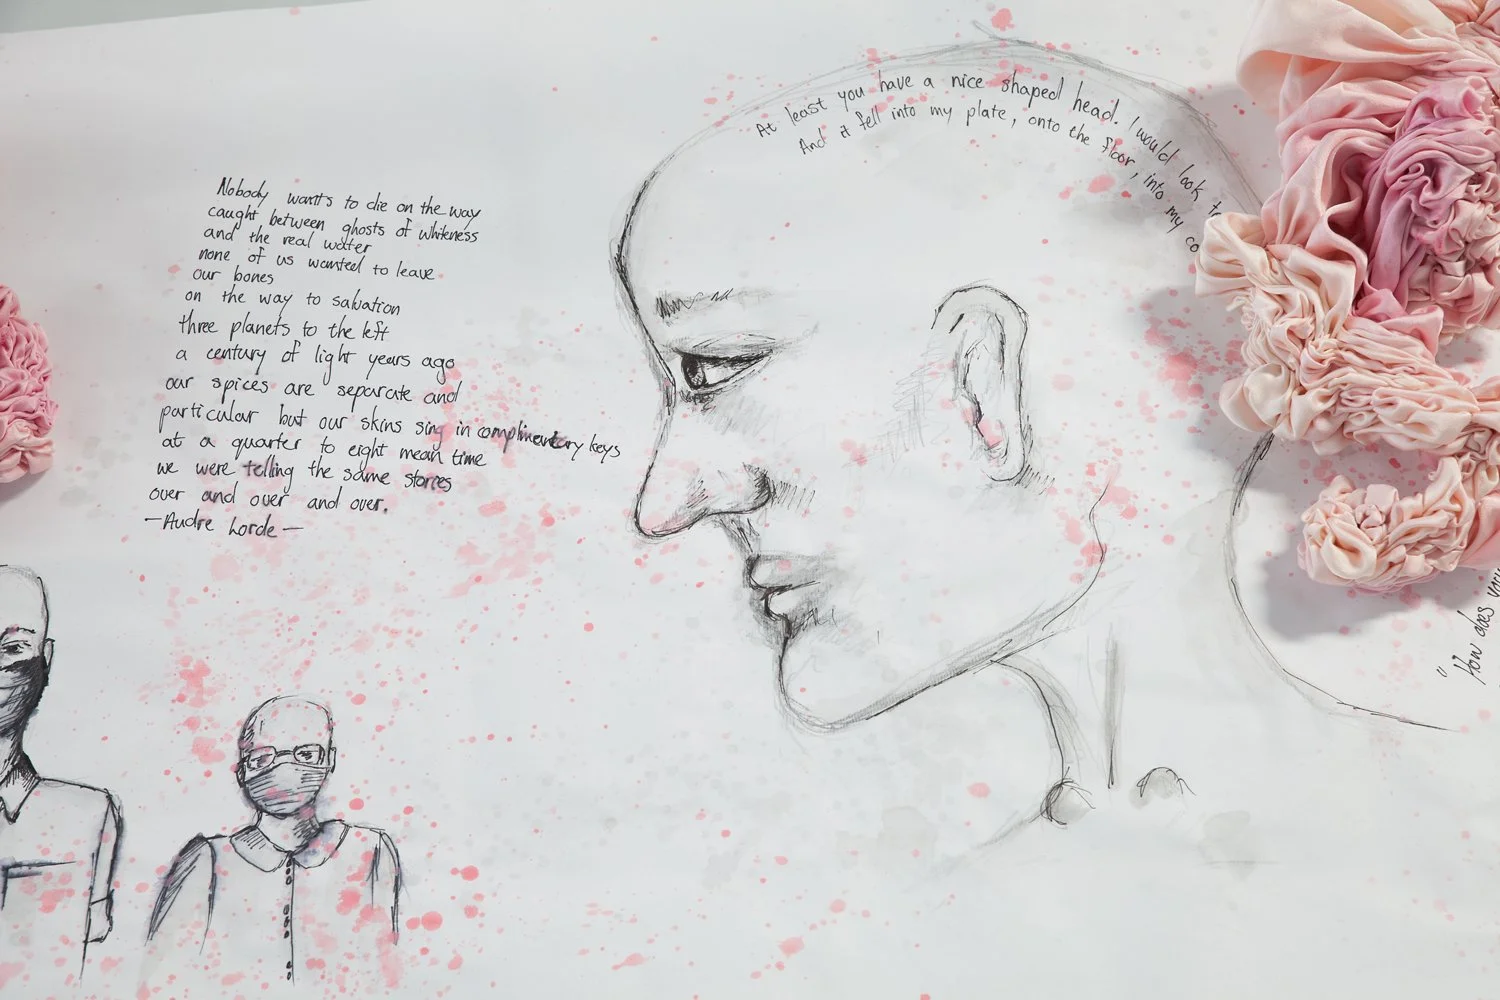 Nobody wants to die on the way
caught between ghosts of whiteness
and the real water
none of us wanted to leave
our bones
on the way to salvation
three planets to the left
a century of light years ago
our spices are separate and
particular but our skins sing in complimentary keys
at a quarter to eight mean time
we were telling the same stories
over and over and over.
—Audre Lorde—
At least you have a nice shaped head. I would look
And it fell into my plate, onto the floor, into my
"How does